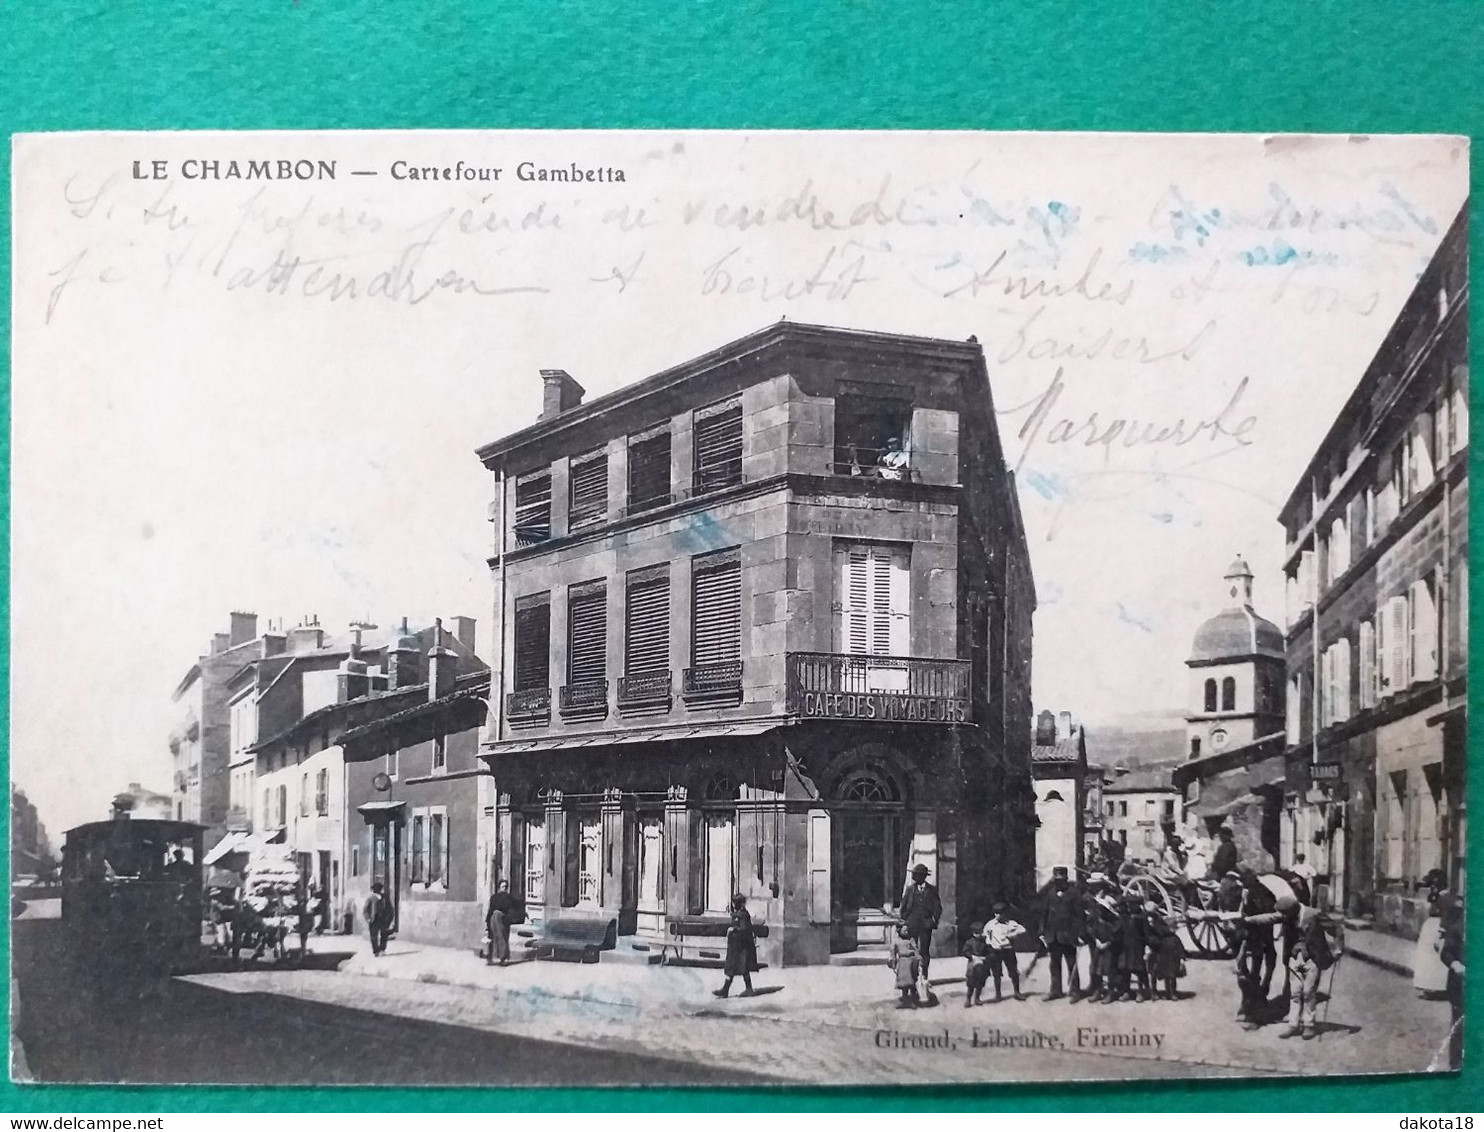 LE CHAMBON — Carrefour Gambetta
Si tu préferes jeudi ou vendredi
je t'attendrai à bientôt Amitiés et bons
baisers
Marguerite
CAFE DES VOYAGEURS
TABACS
Giroud, Libraire, Firminy
delcampe.net
dakota18